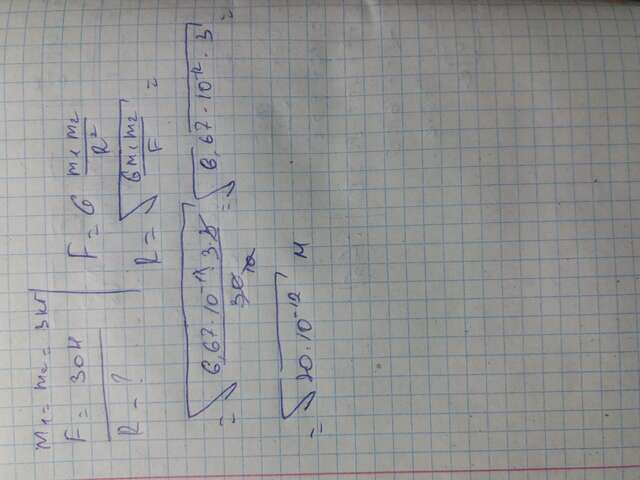 m₁ = m₂ = 3 кг
F = 30 Н
R - ?
F = G m₁ m₂ / R²
R = √(G m₁ m₂ / F) =
= √(6,67 · 10⁻¹¹ · 3 · 3 / 30 10) = √(6,67 · 10⁻¹² · 3) =
= √(20 · 10⁻¹²) м